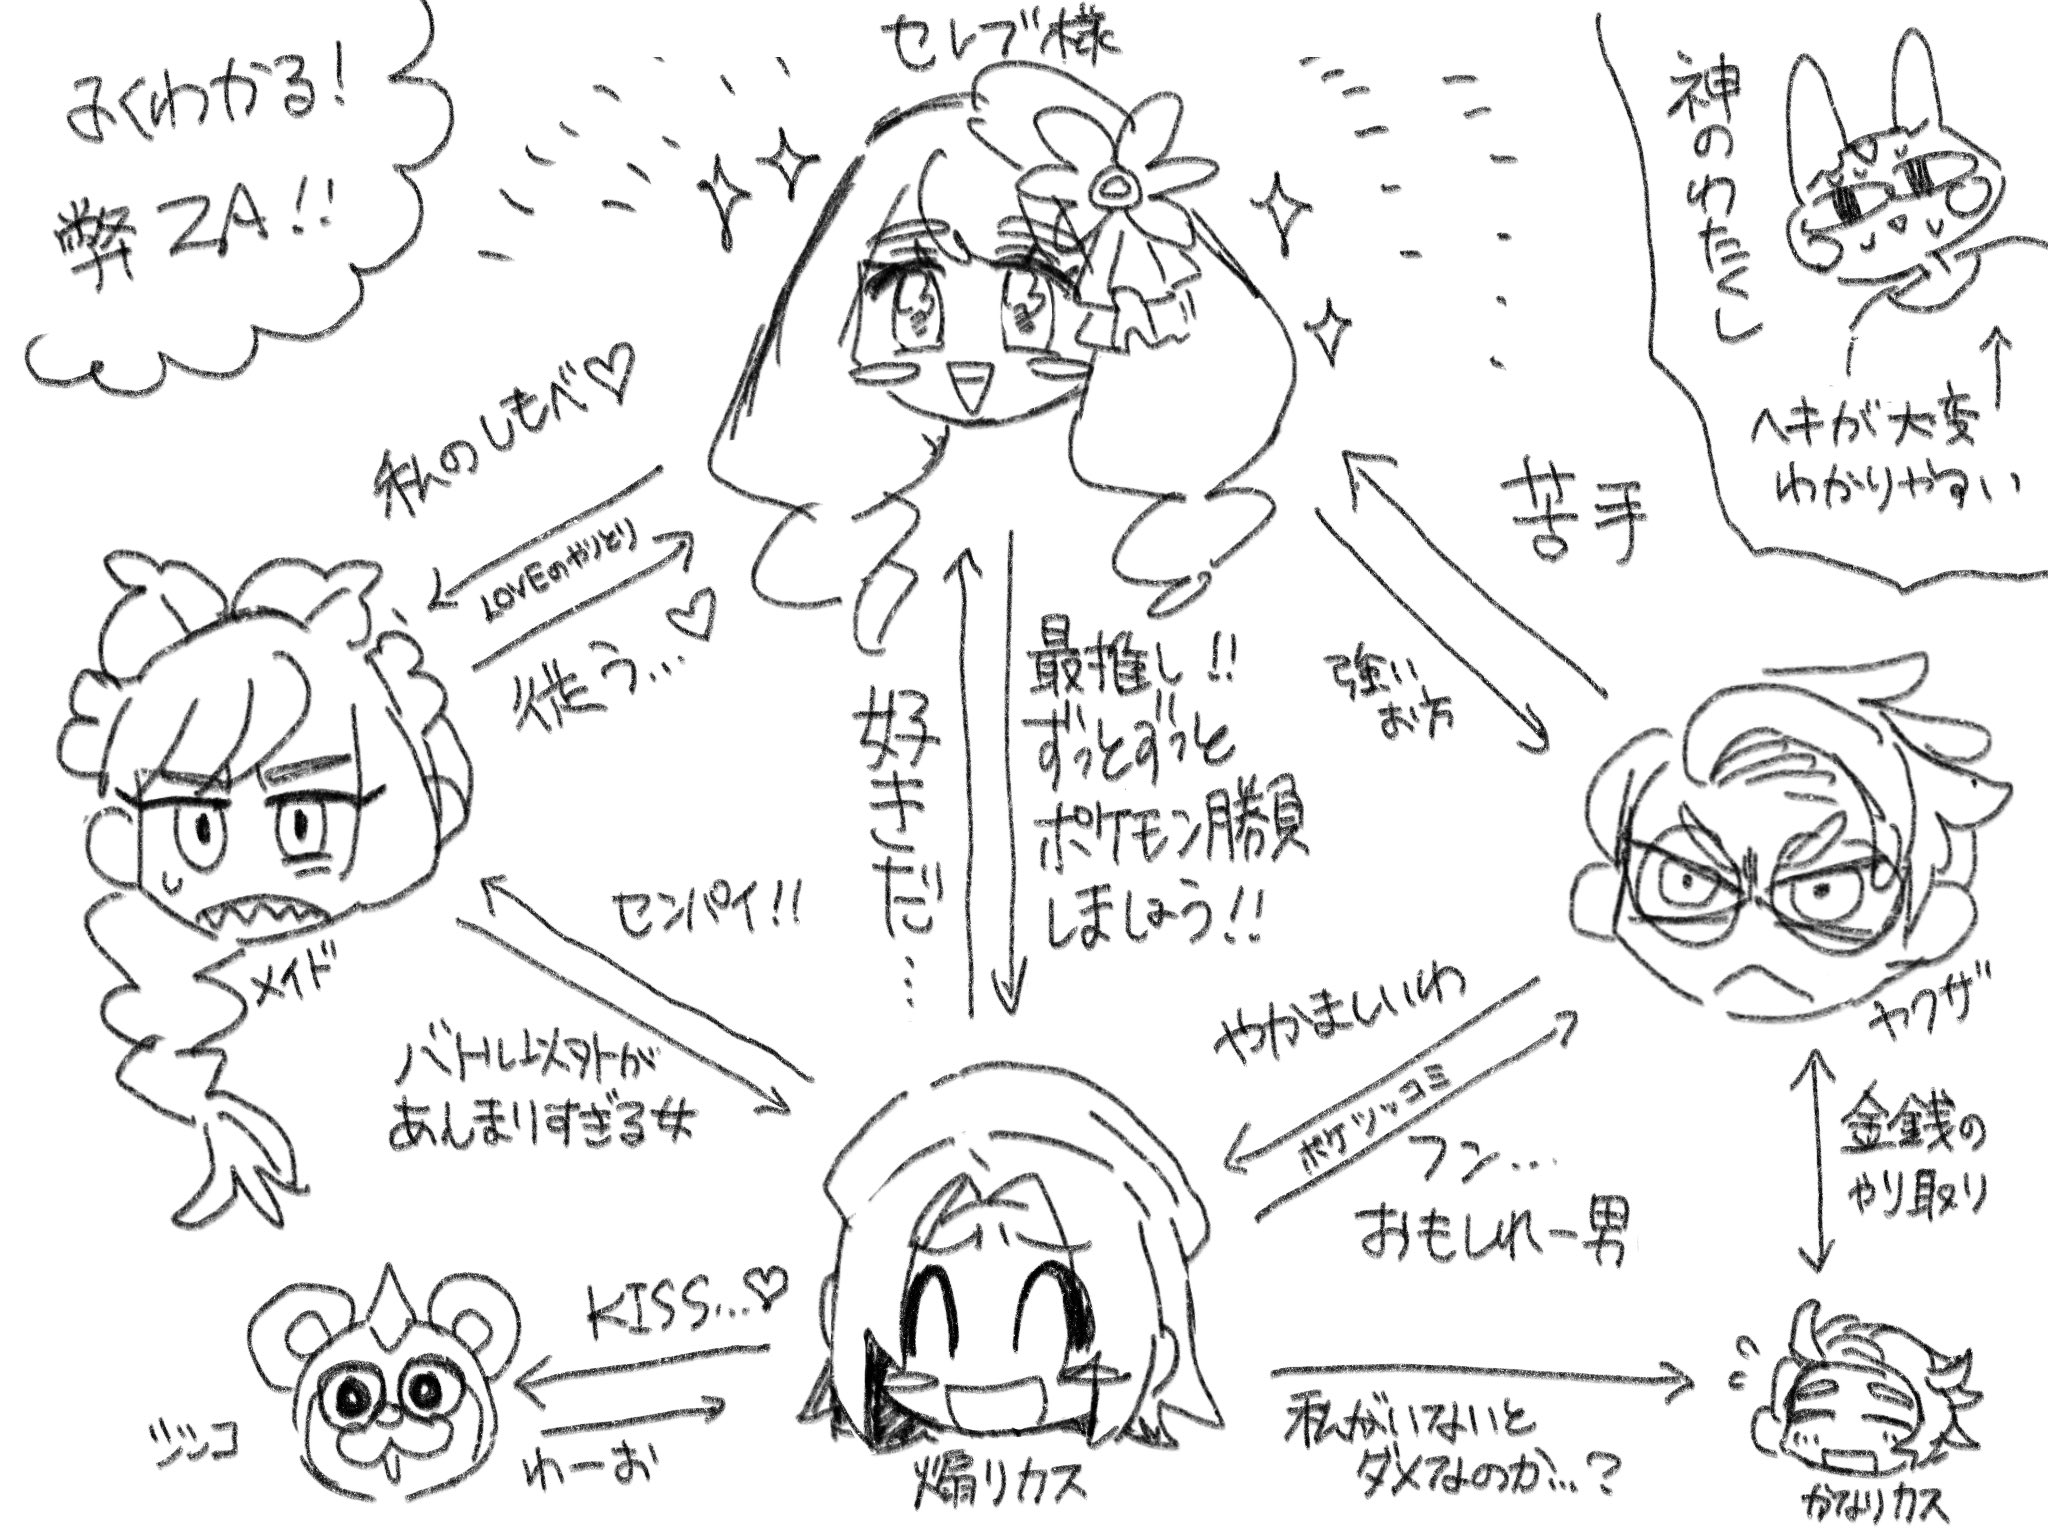 よくわかる!
弊ZA!!
セレブ様
神のわたくし
ヘキが大変
わかりやすい
私のしもべ♡
LOVEのやりとり
従う…♡
苦手
強い
お方
好きだ…
最推し!!
ずっとずっと
ポケモン勝負
しましょう!!
メイド
センパイ!!
バトル以外が
あんまりすぎる女
ヤクザ
やかましいわ
ポケツッコミ
フン…
おもしれー男
金銭の
やり取り
KISS…♡
わーお
ジンコ
煽りカス
私がいないと
ダメなのか…?
かなりカス